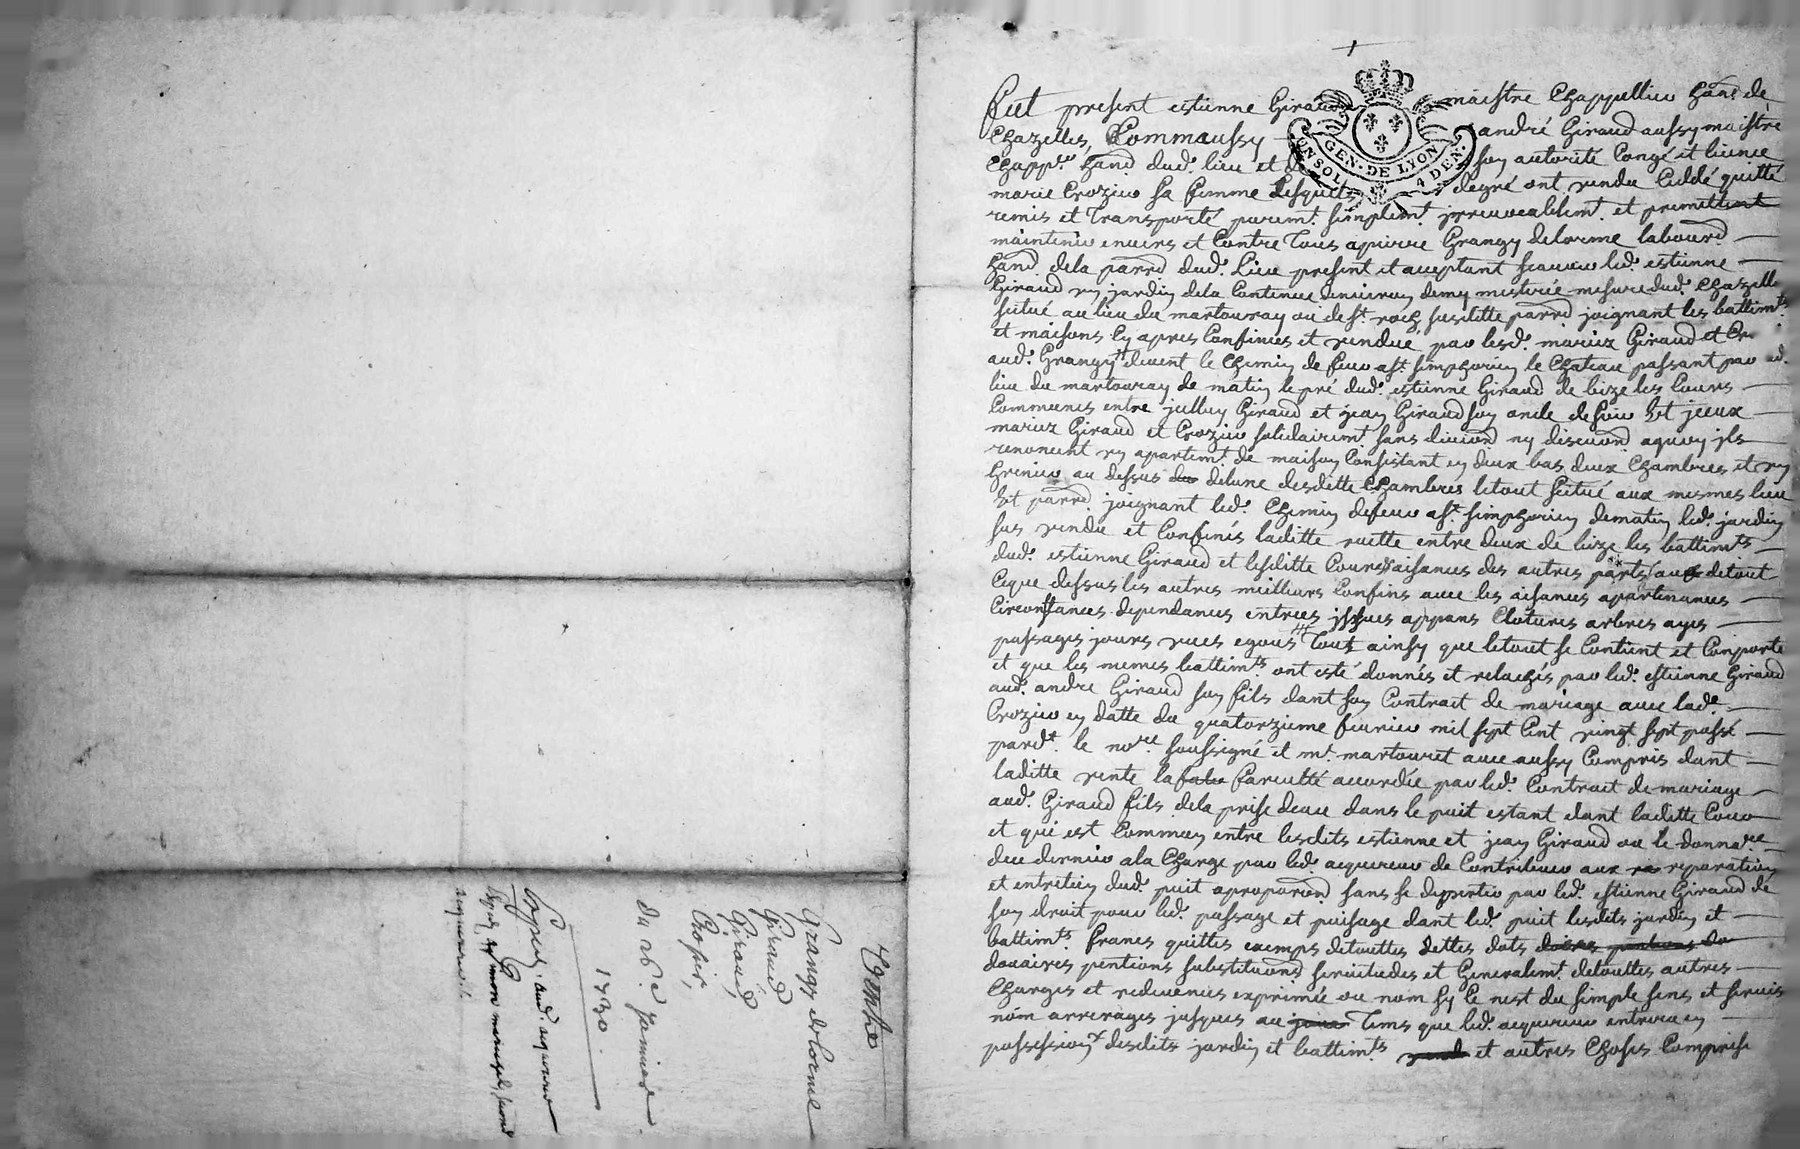 Fut present estienne Giraud maistre Chappellier hand. de
Chazelles, Commaussy andré Giraud aussy maistre
Chapp.er hand. dud. lieu et de son autorité Congé et licence
marie Crozier sa femme Lesquels degré ont vendu Ceddé quitté
remis et Transporté purem.t simplem.t jrrevocablem.t et promettent
maintenir envers et Contre Tous apierre Grangy delorme labourd
hand. dela parr.d dud. Lieu present et acceptant scavoir led. estienne
Giraud un jardin dela Contenue denviron demy mesterée mesure dud. Chazelle
scitué au lieu du martouray ou de st. roch susditte parr.d joignant les battim.ts
et maisons Cy apres Confinies et vendue par lesd. mariez Giraud et Cr
aud. Grangy duent le Chemin de feur a st. simphorien le Chateau passant par led.
lieu du martouray de matin le pré dud. estienne Giraud de bize les Cours
Communes entre julluy Giraud et jean Giraud son oncle de soir Et jceux
mariez Giraud et Crozier solidairem.t sans division ny discution aquoy jls
renoncent un apartem.t de maison Consistant en deux bas deux Chambres et un
Grenier au dessus du delune desditte Chambres letout scitué aux mesmes lieu
Et parr.d joignant led. Chemin defeur a st. simphorien dematin led. jardin
sus vendu et Confinés laditte ruette entre deux de bize les battim.ts
dud. estienne Giraud et lesditte Cours aisances des autres parts aux detout
Ceque dessus les autres meilleurs Confins avec les aisances apartenances
Circonstances dependances entrees jssues appans Clotures arbres ayes
passages jours vues egous Tout ainsy que letout se Contient et Comporte
et que les memes battim.ts ont esté donnés et relachés par led. estienne Giraud
aud. andre Giraud son fils dant son Contrait de mariage avec lad.
Crozier en datte du quatorzieme fevrier mil sept Cent vingt sept passé
pard.t le no.re soussigné et m.e martouret avec aussy Compris dant
laditte vente la faculté accordée par led. Contrait de mariage
aud. Giraud fils dela prise deau dans le puit estant dant laditte Cour
et qui est Commun entre lesdits estienne et jean Giraud ou le donna.re
dece dernier ala Charge par led. acquereur de Contribuer aux reparations
et entretien dud. puit aproportion sans se departir par led. estienne Giraud de
son droit pour led. passage et puisage dant led. puit lesdits jardin et
battim.ts francs quittes exemps detouttes dettes dots
douaires pentions substitutions servitudes et Generalem.t detouttes autres
Charges et redevances exprimée ou nom sy Ce nest du simple sens et servis
nom arrerages jusques au Tems que led. acquereur entrera en
possession desdits jardin et battim.ts et autres Choses Comprise
GEN. DE LYON
4 DEN.
Vente
Grangy delorme
Giraud
Giraud
Crosier,
du 26.e janvier
1730.
aud. acquereur